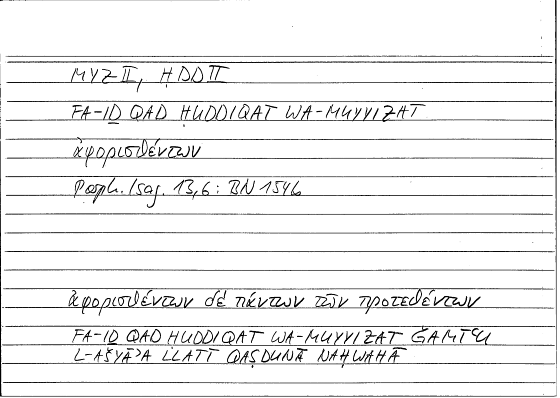 MYZ II, ḤDD II
FA-ID̲ QAD ḤUDDIQAT WA-MUYYIZAT
ἀφορισθέντων
Porph. Isag. 13,6 : BN 154b
ἀφορισθέντων δέ πάντων τῶν προτεθέντων
FA-ID̲ QAD HUDDIQAT WA-MUYYIZAT ǦAMĪʿU
L-AŠYĀʾA LLATĪ QAṢDUNĀ NAḤWAHĀ